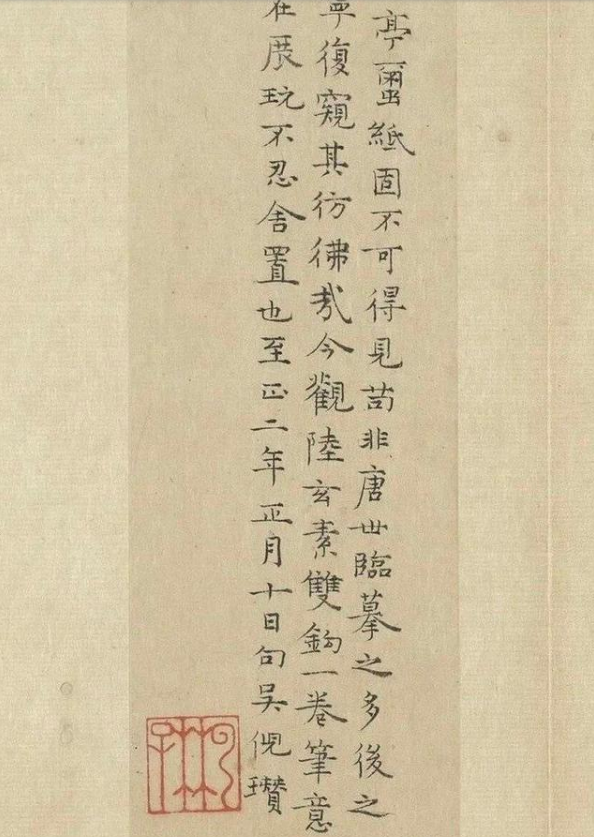 亭蠒紙固不可得見苟非唐世臨摹之多後之
寧復窺其彷彿哉今觀陸玄素雙鈎一卷筆意
在展玩不忍舍置也至正二年正月十日句吳倪瓚